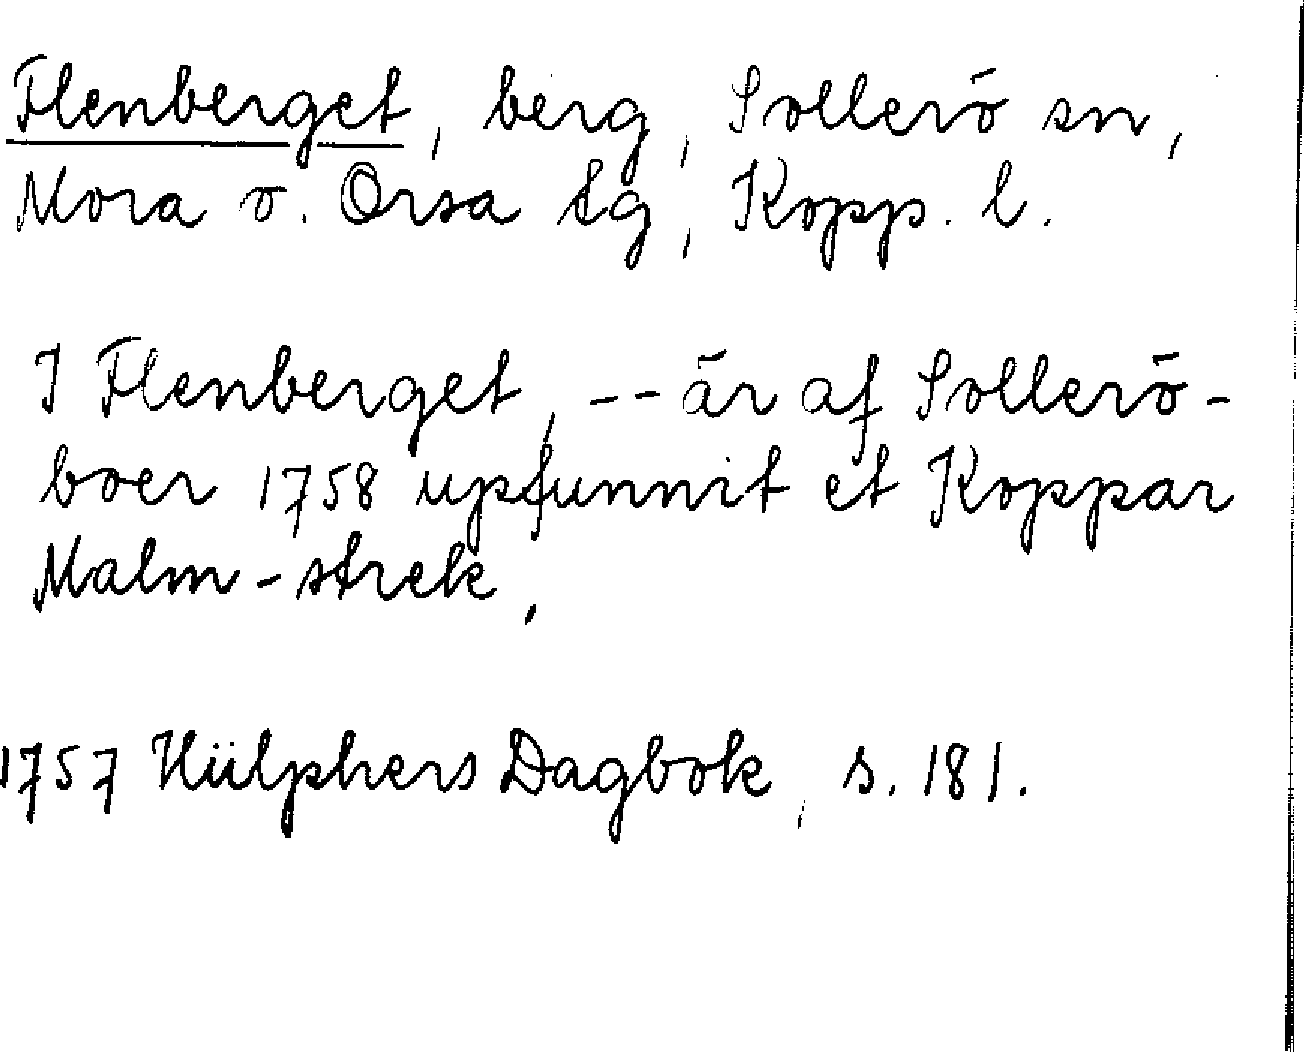 Flenberget, berg, Sollerö sn,
Mora o. Orsa tg, Kopp. l.
I Flenberget, -- är af Sollerö-
boer 1758 upfunnit et Koppar
Malm-strek,
1757 Hülphers Dagbok, s. 181.